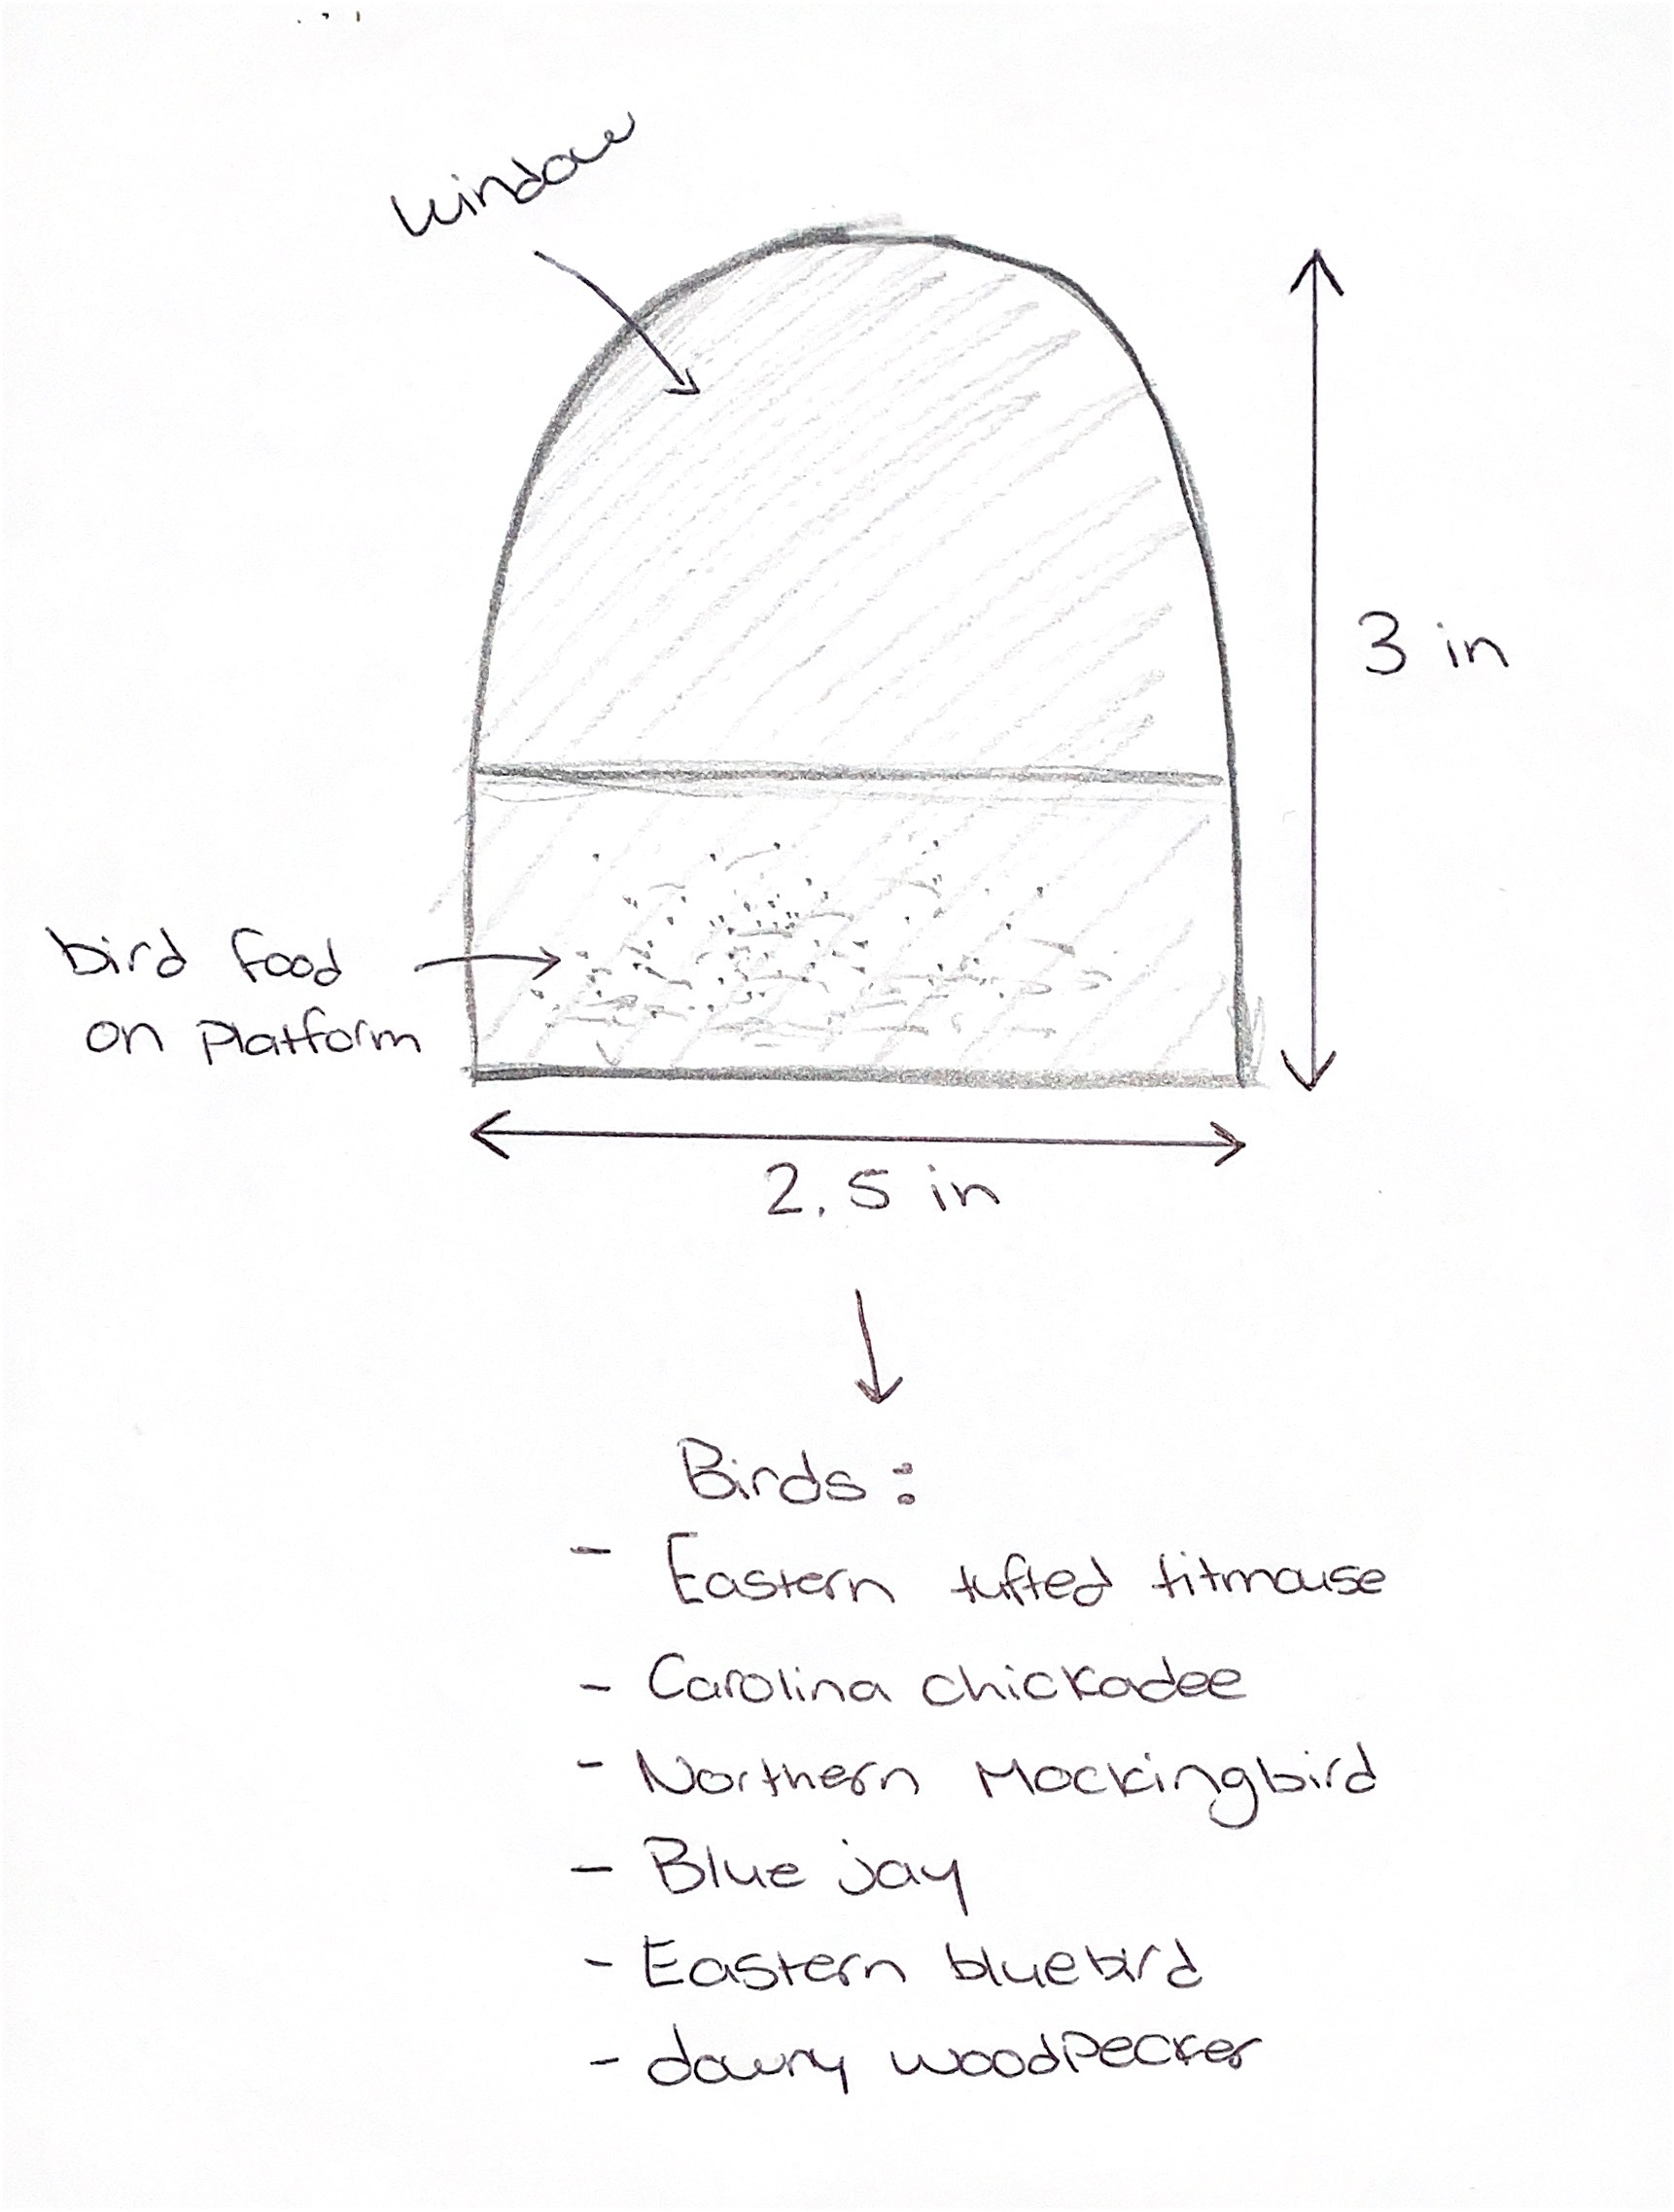 window
3 in
bird food
on platform
2.5 in
Birds:
- Eastern tufted titmouse
- Carolina chickadee
- Northern Mockingbird
- Blue jay
- Eastern bluebird
- downy woodpecker